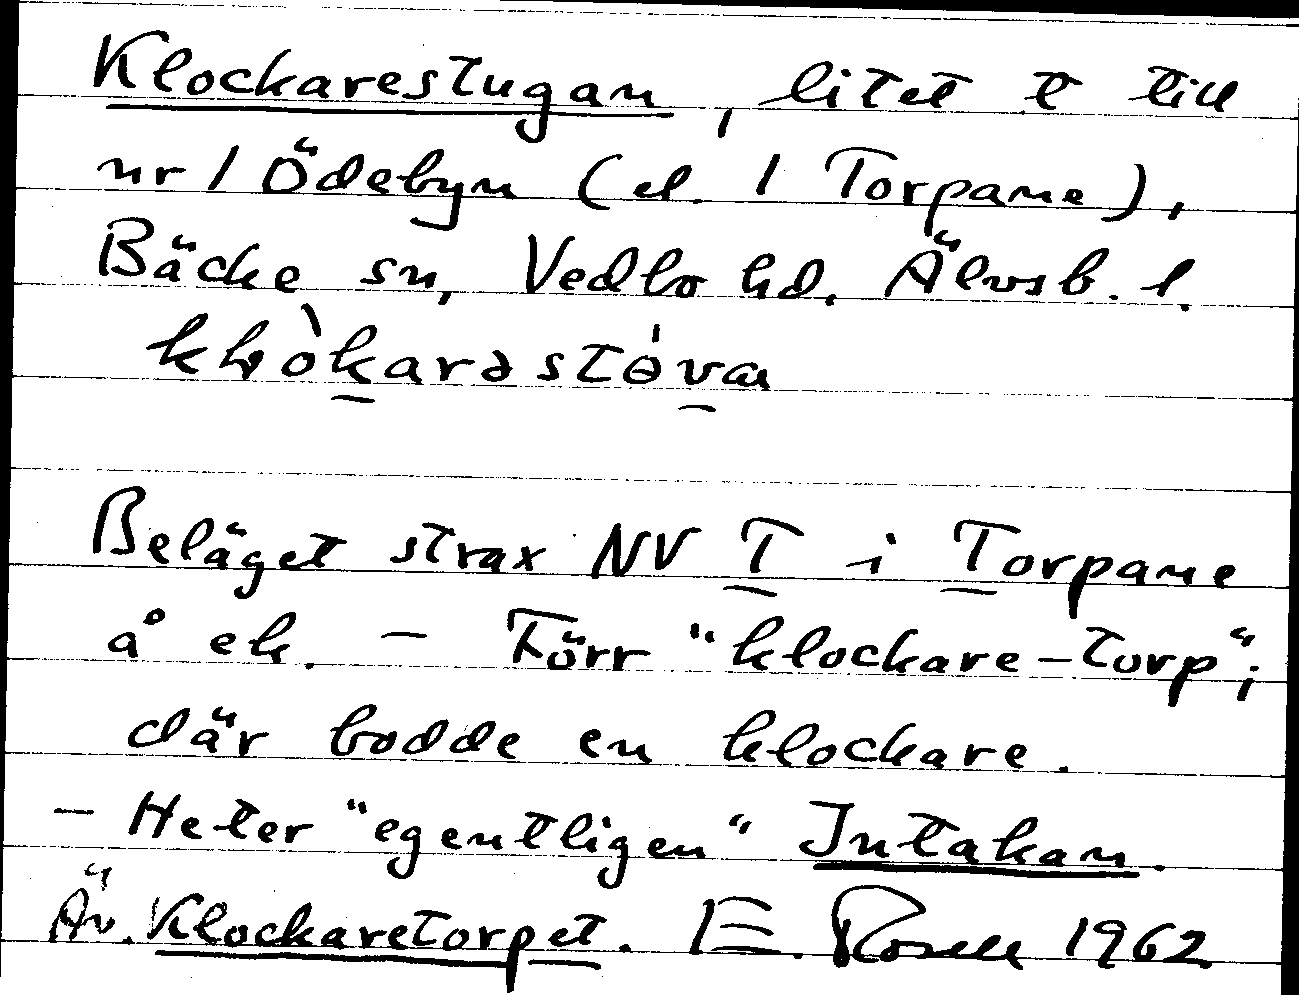 Klockarestugan, litet t till
nr 1 Ödebyn (el. 1 Torpane),
Bäcke sn, Vedbo hd. Älvsb. l.
Beläget strax NV T i Torpane
å ek. – Förr "klockare-torp";
där bodde en klockare.
– Heter "egentligen" Intakan.
Äv. Klockaretorpet. E. Rosell 1962